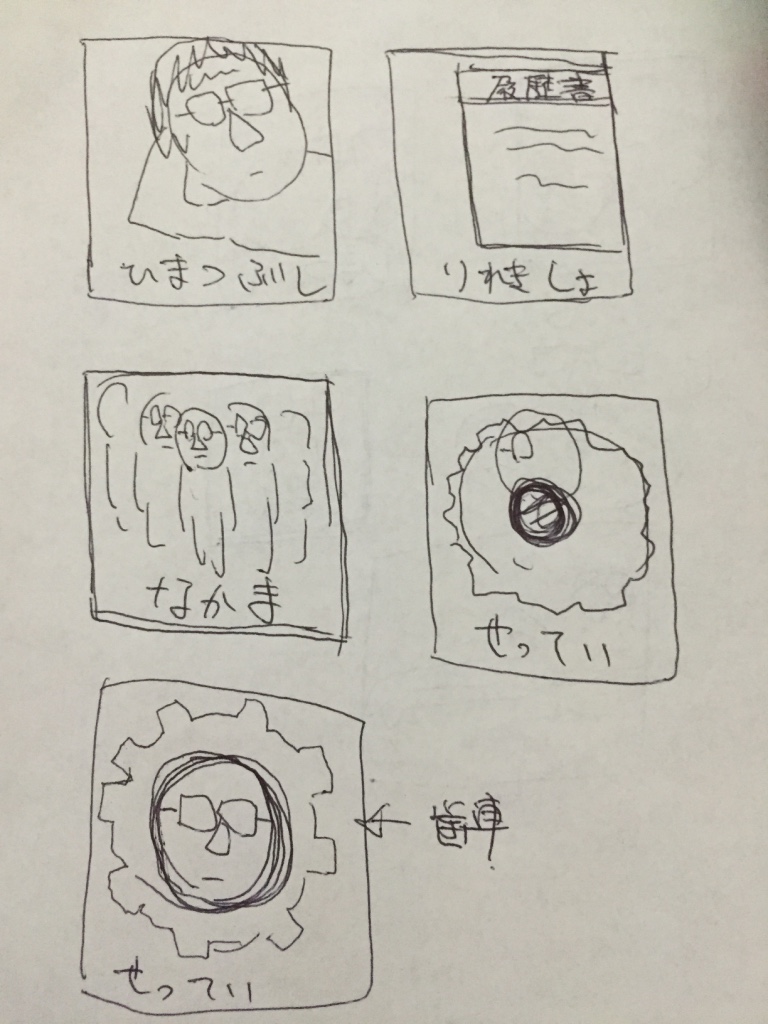 ひまつぶし
履歴書
りれきしょ
なかま
せってい
歯車
せってい